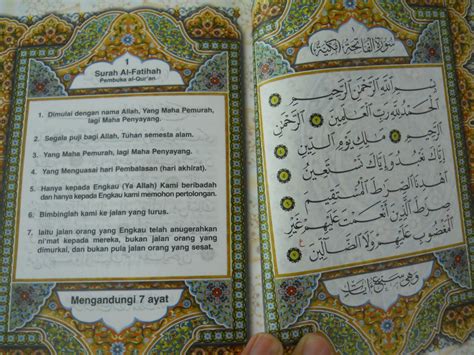 1
Surah Al-Fatihah
Pembuka al-Qur'an
1. Dimulai dengan nama Allah, Yang Maha Pemurah,
lagi Maha Penyayang.
2. Segala puji bagi Allah, Tuhan semesta alam.
3. Yang Maha Pemurah, lagi Maha Penyayang.
4. Yang Menguasai hari Pembalasan (hari akhirat).
5. Hanya kepada Engkau (Ya Allah) Kami beribadah
dan hanya kepada Engkau kami memohon pertolongan.
6. Bimbinglah kami ke jalan yang lurus.
7. Iaitu jalan orang yang Engkau telah anugerahkan
ni'mat kepada mereka, bukan jalan orang yang
dimurkai, dan bukan pula jalan orang yang sesat.
Mengandungi 7 ayat
١
سُورَةُ الفَاتِحَةِ (مَكِّيَّة)
بِسْمِ اللَّهِ الرَّحْمَٰنِ الرَّحِيمِ
الْحَمْدُ لِلَّهِ رَبِّ الْعَالَمِينَ الرَّحْمَٰنِ
الرَّحِيمِ مَلِكِ يَوْمِ الدِّينِ
إِيَّاكَ نَعْبُدُ وَإِيَّاكَ نَسْتَعِينُ
اهْدِنَا الصِّرَاطَ الْمُسْتَقِيمَ
صِرَاطَ الَّذِينَ أَنْعَمْتَ عَلَيْهِمْ غَيْرِ
الْمَغْضُوبِ عَلَيْهِمْ وَلَا الضَّالِّينَ
وَهِيَ سَبْعُ آيَات